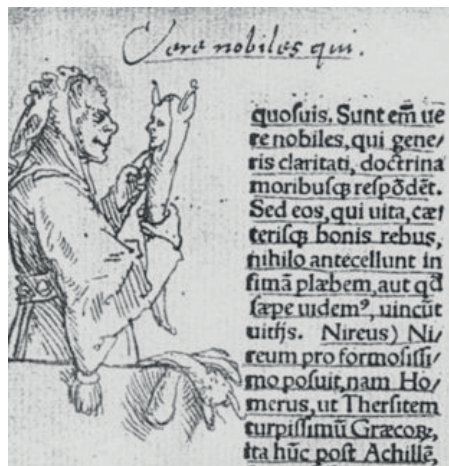 Vere nobiles qui.
quosuis. Sunt em̄ ue
re nobiles, qui gene/
ris claritati, doctrina
moribusꝙ respōdēt.
Sed eos, qui uita, cæt
terisꝙ bonis rebus,
nihilo antecellunt in
fimā plæbem, aut qđ
sæpe uidemꝰ, uincūt
uitijs. Nireus) Ni/
reum pro formosissi/
mo posuit, nam Ho/
merus, ut Thersitem
turpissimū Græcoꝝ,
ita hūc post Achillē,